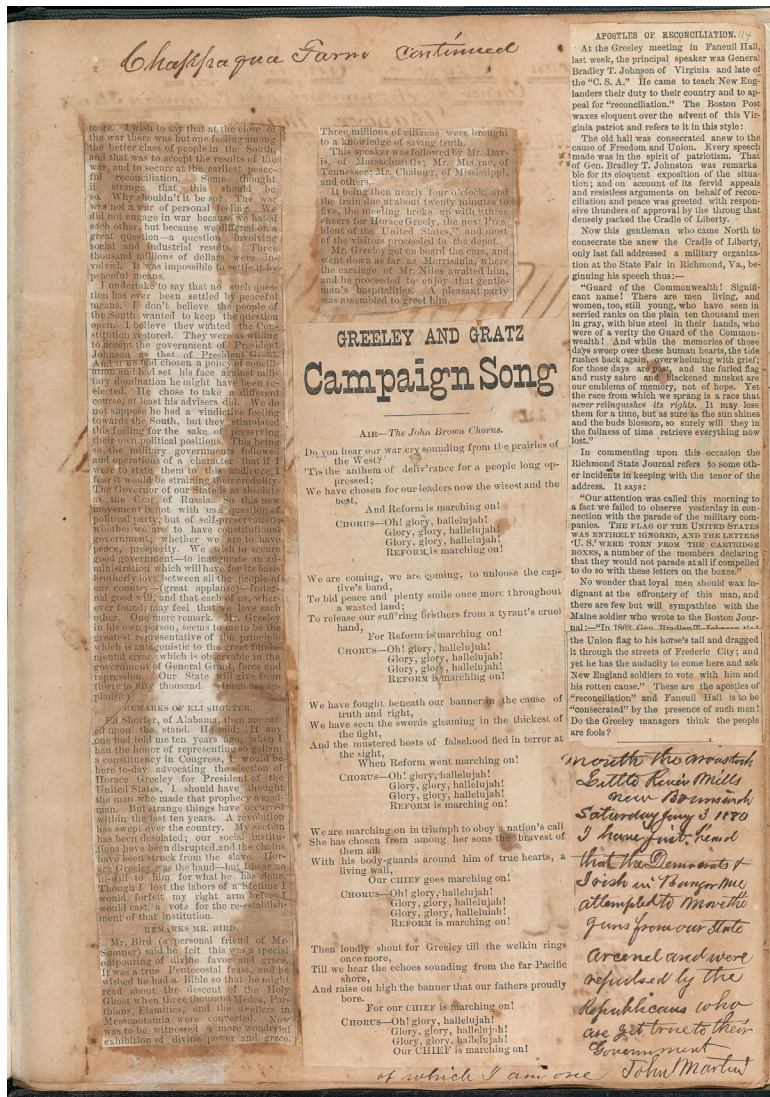 Chappaqua Farm Continued
more. I wish to say that at the close of
the war there was but one feeling among
the better class of people in the South,
and that was to accept the results of the
war, and to secure at the earliest peace-
ful reconciliation. Some thought
it strange that this should be
so. Why shouldn't it be so? The war
was not a war of personal feeling. We
did not engage in war because we hated
each other, but because we differed on a
great question—a question involving
social and industrial results. Three
thousand millions of dollars were in-
volved. It was impossible to settle it by
peaceful means.
I undertake to say that no such ques-
tion has ever been settled by peaceful
means. I don't believe the people of
the South wanted to keep the question
open. I believe they wanted the Con-
stitution restored. They were as willing
to accept the government of President
Johnson as that of President Grant.
And if he had chosen a policy of concili-
ation and had set his face against mili-
tary domination he might have been re-
elected. He chose to take a different
course, at least his advisers did. We do
not suppose he had a vindictive feeling
towards the South, but they stimulated
this feeling for the sake of preserving
their own political positions. This being
so, the military government followed
and operations of a character that if I
were to state them to this audience, I
fear it would be straining their credulity.
The Governor of our State is as absolute
as the Czar of Russia. So this new
movement is not with us a question of
political party, but of self-preservation—
whether we are to have constitutional
government, whether we are to have
peace, prosperity. We wish to secure
good government—to inaugurate an ad-
ministration which will have for its basis
brotherly love between all the people of
our country—(great applause)—frater-
nal good will, and that each of us, wher-
ever found, may feel that we love each
other. One more remark. Mr. Greeley
in his own person, seems to me to be the
greatest representative of the principle
which is antagonistic to the great funda-
mental error which is observable in the
government of General Grant, force and
repression. Our State will give from
thirty to fifty thousand. (Immense ap-
plause.)
REMARKS OF ELI SHORTER.
Eli Shorter, of Alabama, then appear-
ed upon the stand. He said: If any
one had told me ten years ago, when I
had the honor of representing so gallant
a constituency in Congress, I would be
here to-day advocating the election of
Horace Greeley for President of the
United States, I should have thought
the man who made that prophecy a mad-
man. But strange things have occurred
within the last ten years. A revolution
has swept over the country. My section
has been desolated; our social institu-
tions have been disrupted, and the chains
have been struck from the slave. Hor-
ace Greeley was the hand—but I bear no
ill-will to him for what he has done.
Though I lost the labors of a lifetime I
would forfeit my right arm before I
would cast a vote for the re-establish-
ment of that institution.
REMARKS MR. BIRD.
Mr. Bird (a personal friend of Mr.
Sumner) said he felt this was a special
outpouring of divine favor and grace.
It was a true Pentecostal feast, and he
wished he had a Bible so that he might
read about the descent of the Holy
Ghost when three thousand Medes, Par-
thians, Elamities, and the dwellers in
Messopotamia were converted. Now
was to be witnessed a more wonderful
exhibition of divine power and grace.
Three millions of citizens were brought
to a knowledge of saving truth.
This speaker was followed by Mr. Dav-
is, of Massachusetts; Mr. McCrae, of
Tennessee; Mr. Chalmer, of Mississippi,
and others.
It being then nearly four o'clock, and
the train due at about twenty minutes to
five, the meeting broke up with "three
cheers for Horace Greely, the next Pres-
ident of the United States," and most
of the visitors proceeded to the depot.
Mr. Greeley got on board the cars, and
went down as far as Morrisania, where
the carriage of Mr. Niles awaited him,
and he proceeded to enjoy that gentle-
man's hospitalities. A pleasant party
was assembled to greet him.
GREELEY AND GRATZ
Campaign Song
AIR—The John Brown Chorus.
Do you hear our war cry sounding from the prairies of
the West?
'Tis the anthem of deliv'rance for a people long op-
pressed;
We have chosen for our leaders now the wisest and the
best,
And Reform is marching on!
CHORUS—Oh! glory, hallelujah!
Glory, glory, hallelujah!
Glory, glory, hallelujah!
REFORM is marching on!
We are coming, we are coming, to unloose the cap-
tive's band,
To bid peace and plenty smile once more throughout
a wasted land;
To release our suff'ring brothers from a tyrant's cruel
hand,
For Reform is marching on!
CHORUS—Oh! glory, hallelujah!
Glory, glory, hallelujah!
Glory, glory, hallelujah!
REFORM is marching on!
We have fought beneath our banner in the cause of
truth and right,
We have seen the swords gleaming in the thickest of
the fight,
And the mustered hosts of falsehood fled in terror at
the sight,
When Reform went marching on!
CHORUS—Oh! glory, hallelujah!
Glory, glory, hallelujah!
Glory, glory, hallelujah!
REFORM is marching on!
We are marching on in triumph to obey a nation's call
She has chosen from among her sons the bravest of
them all.
With his body-guards around him of true hearts, a
living wall,
Our CHIEF goes marching on!
CHORUS—Oh! glory, hallelujah!
Glory, glory, hallelujah!
Glory, glory, hallelujah!
REFORM is marching on!
Then loudly shout for Greeley till the welkin rings
once more,
Till we hear the echoes sounding from the far Pacific
shore,
And raise on high the banner that our fathers proudly
bore.
For our CHIEF is marching on!
CHORUS—Oh! glory, hallelujah!
Glory, glory, hallelujah!
Glory, glory, hallelujah!
Our CHIEF is marching on!
APOSTLES OF RECONCILIATION. 114
At the Greeley meeting in Faneuil Hall,
last week, the principal speaker was General
Bradley T. Johnson of Virginia and late of
the "C. S. A." He came to teach New Eng-
landers their duty to their country and to ap-
peal for "reconciliation." The Boston Post
waxes eloquent over the advent of this Vir-
ginia patriot and refers to it in this style:
The old hall was consecrated anew to the
cause of Freedom and Union. Every speech
made was in the spirit of patriotism. That
of Gen. Bradley T. Johnston was remarka-
ble for its eloquent exposition of the situa-
tion; and on account of its fervid appeals
and resistless arguments on behalf of recon-
ciliation and peace was greeted with respon-
sive thunders of approval by the throng that
densely packed the Cradle of Liberty.
Now this gentleman who came North to
consecrate anew the Cradle of Liberty,
only last fall addressed a military organiza-
tion at the State Fair in Richmond, Va., be-
ginning his speech thus:—
"Guard of the Commonwealth! Signifi-
cant name! There are men living, and
women, too, still young, who have seen in
serried ranks on the plain ten thousand men
in gray, with blue steel in their hands, who
were of a verity the Guard of the Common-
wealth! And while the memories of those
days sweep over these human hearts, the tide
rushes back again, overwhelming with grief;
for those days are past, and the furled flag
and rusty sabre and blackened musket are
our emblems of memory, not of hope. Yet
the race from which we sprang is a race that
never relinquishes its rights. It may lose
them for a time, but as sure as the sun shines
and the buds blossom, so surely will they in
the fullness of time retrieve everything now
lost."
In commenting upon this occasion the
Richmond State Journal refers to some oth-
er incidents in keeping with the tenor of the
address. It says:
"Our attention was called this morning to
a fact we failed to observe yesterday in con-
nection with the parade of the military com-
panies. THE FLAG OF THE UNITED STATES
WAS ENTIRELY IGNORED, AND THE LETTERS
'U. S.' WERE TORN FROM THE CARTRIDGE
BOXES, a number of the members declaring
that they would not parade at all if compelled
to do so with these letters on the boxes."
No wonder that loyal men should wax in-
dignant at the effrontery of this man, and
there are few but will sympathize with the
Maine soldier who wrote to the Boston Jour-
nal:—"In 1862, Gen. Bradley T. Johnson tied
the Union flag to his horse's tail and dragged
it through the streets of Frederic City; and
yet he has the audacity to come here and ask
New England soldiers to vote with him and
his rotten cause." These are the apostles of
"reconciliation" and Faneuil Hall is to be
"consecrated" by the presence of such men!
Do the Greeley managers think the people
are fools?
mouth the aroostook
Little River Mills
new Brunswick
Saturday Jany 3 1880
I have just heard
that the Democrats &
Irish in Bangor Me
attempted to move the
guns from our State
Arcenel and were
repulsed by the
Republicans who
are yet true to their
Government
John Martin
of which I am one